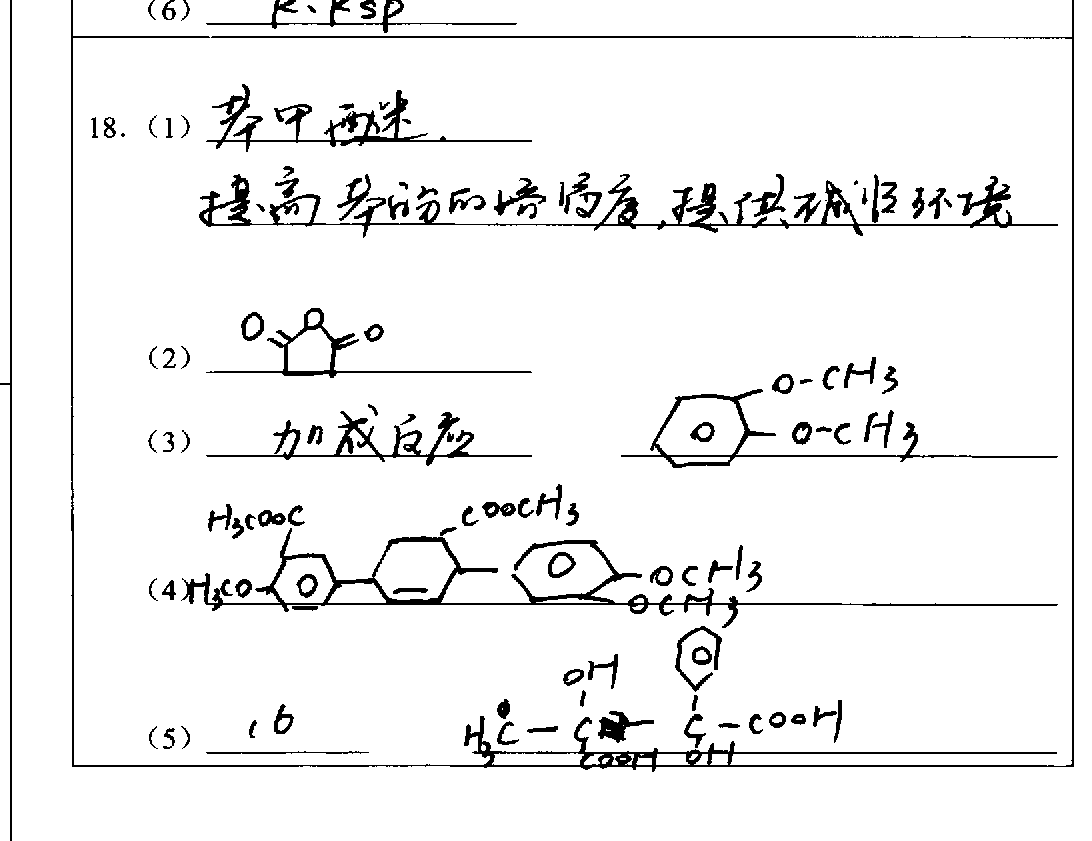 (6) K、Ksp
18. (1) 苯甲醚.
提高苯酚的溶解度,提供碱性环境
(2) O O O
(3) 加成反应 O-CH3
O-CH3
(4) H3COOC COOCH3
H3CO OCH3
OCH3
(5) 16 OH
H3C-C-C-COOH
COOH OH